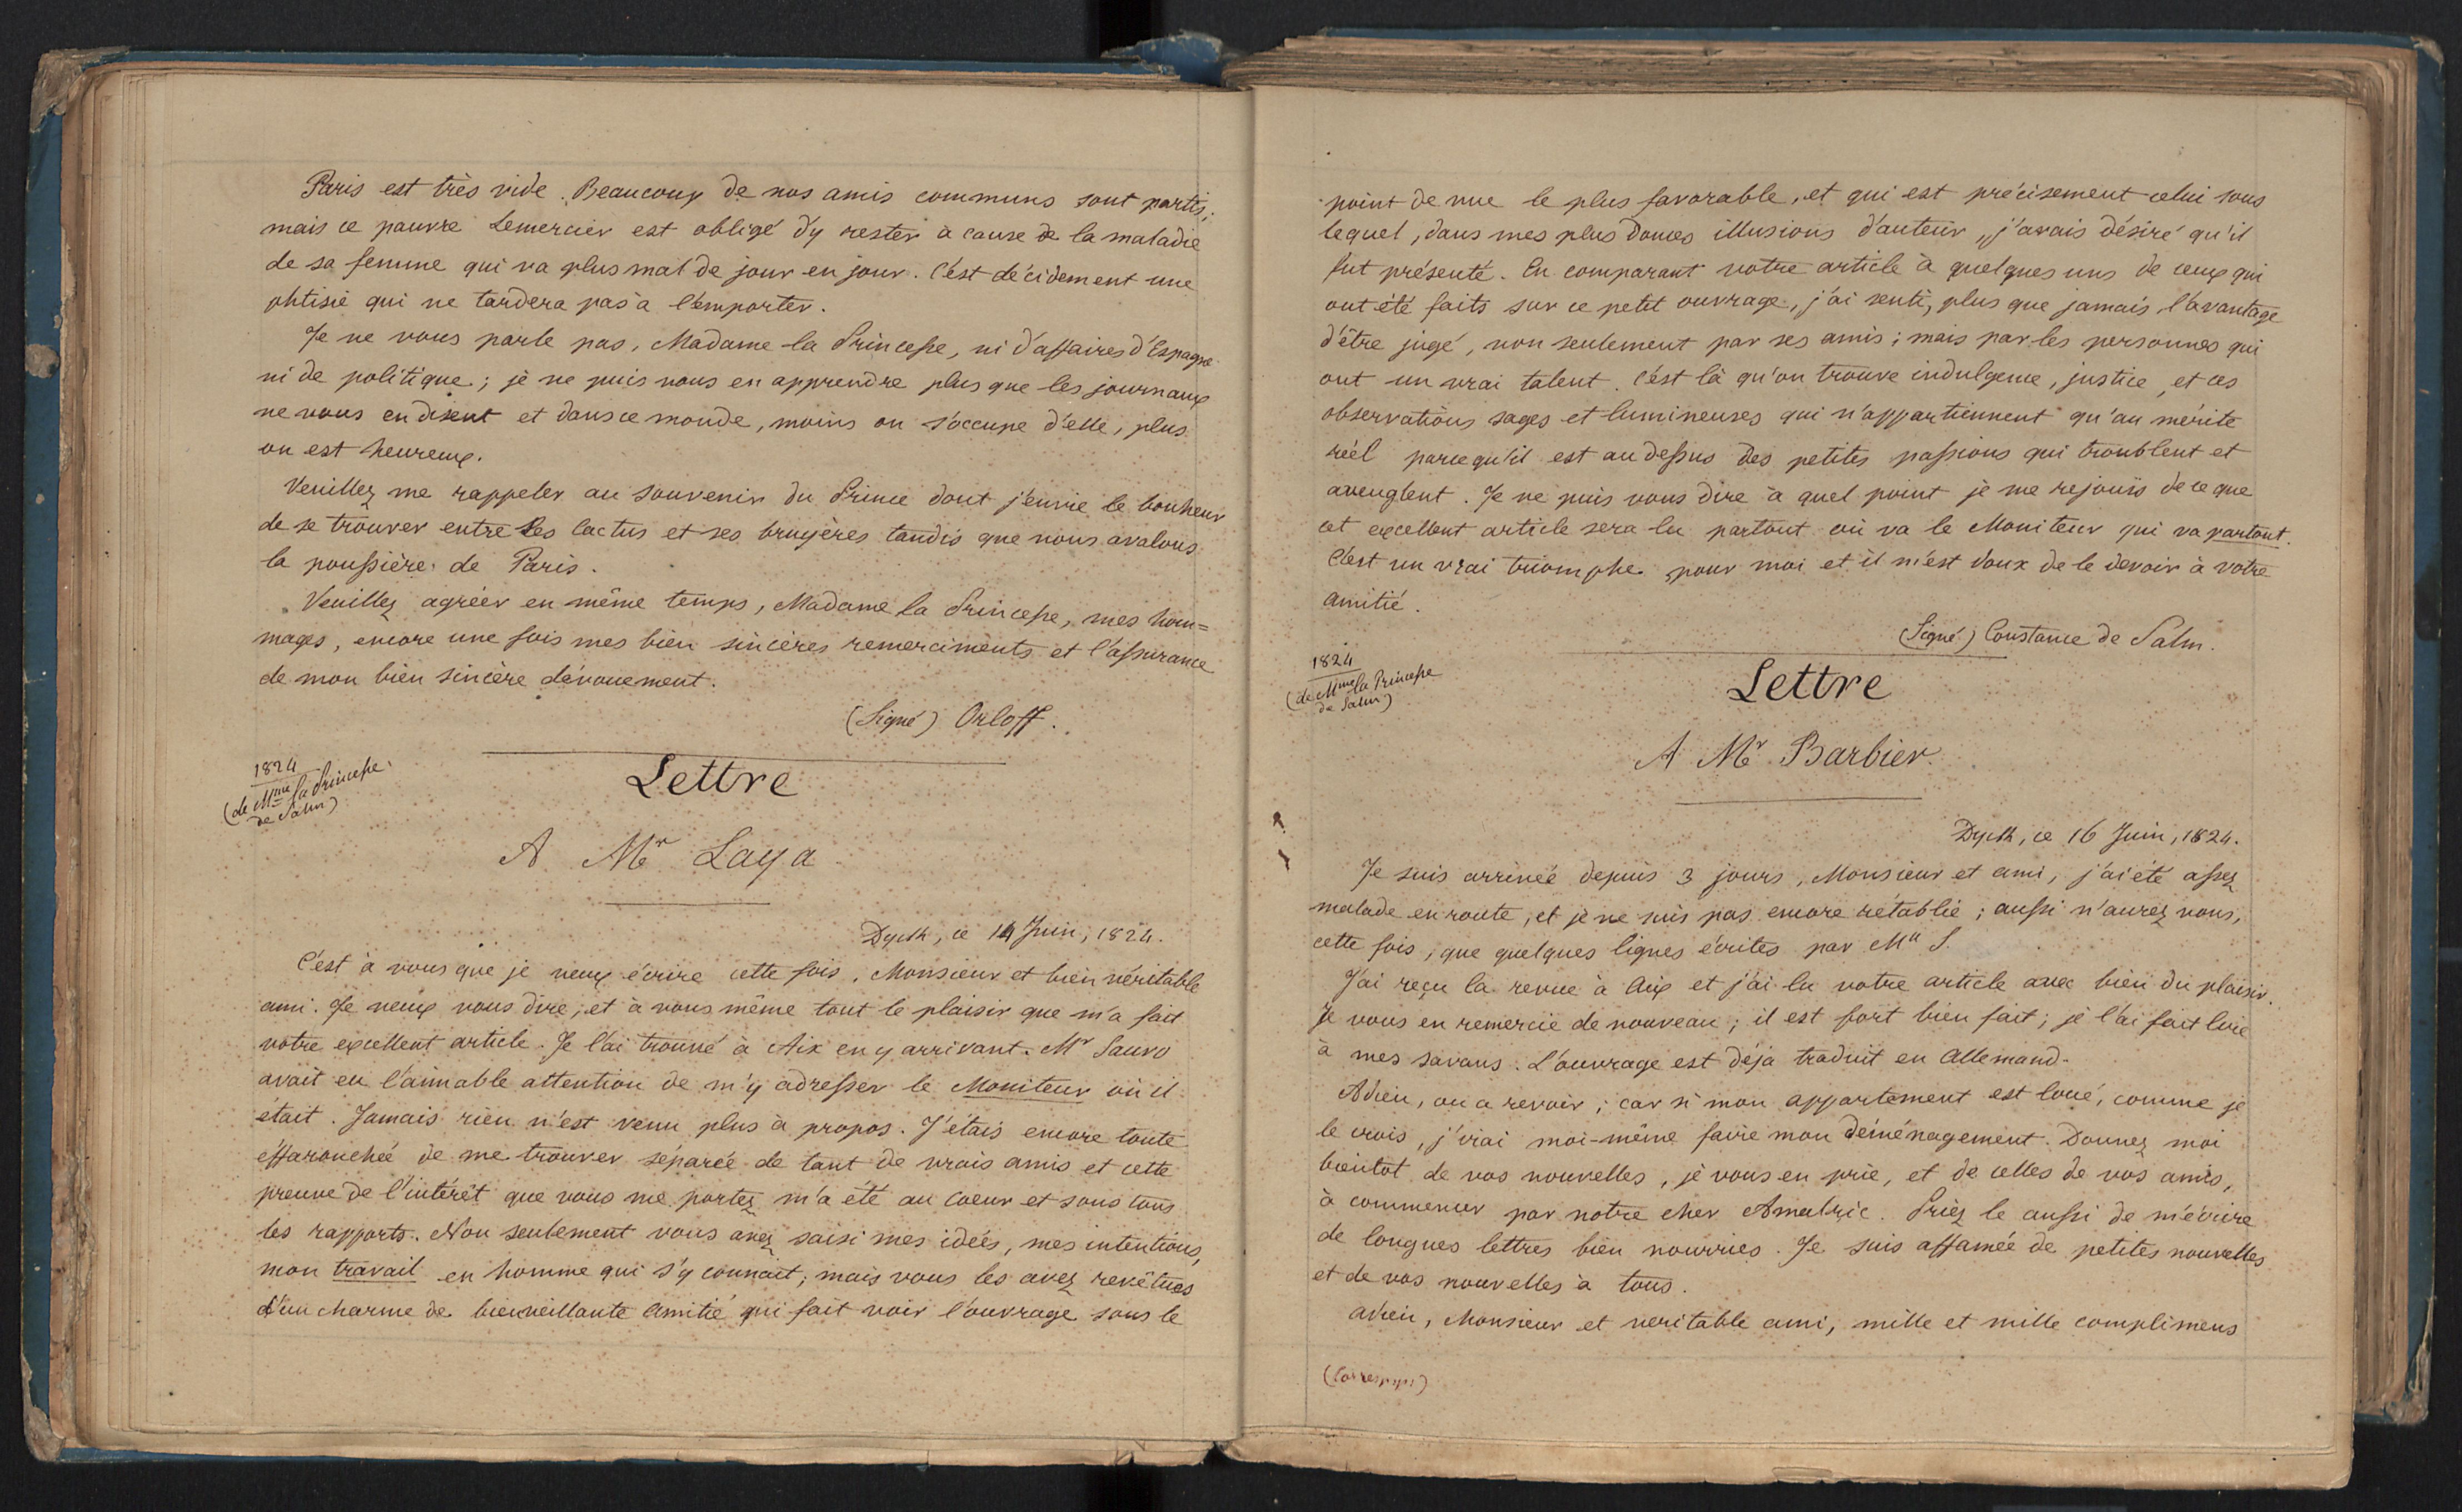 Paris est très vide. Beaucoup de nos amis communs sont partis;
mais ce pauvre Lemercier est obligé d'y rester à cause de la maladie
de sa femme qui va plus mal de jour en jour. C'est décidement une
phtisie qui ne tardera pas à l'emporter.
Je ne vous parle pas, Madame la Princesse, ni d'affaires d'Espagne
ni de politique; je ne puis vous en apprendre plus que les journaux
ne vous en disent et dans ce monde, moins on s'occupe d'elle, plus
on est heureux.
Veuillez me rappeler au souvenir du Prince dont j'envie le bonheur
de se trouver entre ses cactus et ses bruyères tandis que nous avalons
la poussière de Paris.
Veuillez agréer en même temps, Madame la Princesse, mes hom=
mages, encore une fois mes bien sincères remerciments et l'assurance
de mon bien sincère dévouement.
(Signé) Orloff.
1824
(de Mme la Princesse
de Salm)
Lettre
A Mr Laya
Dyck, ce 14 Juin, 1824.
C'est à vous que je veux écrire cette fois, Monsieur et bien véritable
ami. Je veux vous dire, et à vous même tout le plaisir que m'a fait
votre excellent article. Je l'ai trouvé à Aix en y arrivant. Mr Sauvo
avait eu l'aimable attention de m'y adresser le Moniteur où il
était. Jamais rien n'est venu plus à propos. J'étais encore toute
effarouchée de me trouver séparée de tant de vrais amis et cette
preuve de l'intérêt que vous me portez m'a été au coeur et sous tous
les rapports. Non seulement vous avez saisi mes idées, mes intentions,
mon travail en homme qui s'y connait; mais vous les avez revêtues
d'un charme de bienveillante amitié qui fait voir l'ouvrage sous le
point de vue le plus favorable, et qui est précisement celui sous
lequel, dans mes plus douces illusions d'auteur, j'avais désiré qu'il
fut présenté. En comparant votre article à quelques uns de ceux qui
ont été faits sur ce petit ouvrage, j'ai senti, plus que jamais l'avantage
d'être jugé, non seulement par ses amis; mais par les personnes qui
ont un vrai talent. C'est là qu'on trouve indulgence, justice, et ces
observations sages et lumineuses qui n'appartiennent qu'au mérite
réel parcequ'il est au dessus des petites passions qui troublent et
aveuglent. Je ne puis vous dire à quel point je me rejouis de ce que
cet excellent article sera lu partout où va le Moniteur qui va partout.
C'est un vrai triomphe pour moi et il m'est doux de le devoir à votre
amitié.
(Signé) Constance de Salm.
1824
(de Mme la Princesse
de Salm)
Lettre
A Mr Barbier.
Dyck, ce 16 Juin, 1824.
Je suis arrivée depuis 3 jours, Monsieur et ami, j'ai été assez
malade en route, et je ne suis pas encore rétablie; aussi n'aurez vous,
cette fois, que quelques lignes écrites par Mlle S.
J'ai reçu la revue à Aix et j'ai lu votre article avec bien du plaisir.
Je vous en remercie de nouveau; il est fort bien fait; je l'ai fait lire
à mes savans. L'ouvrage est déja traduit en Allemand.
Adieu, ou a revoir; car si mon appartement est loué, comme je
le crois, j'irai moi-même faire mon déménagement. Donnez moi
bientot de vos nouvelles, je vous en prie, et de celles de vos amis,
à commencer par notre cher Amalric. Priez le aussi de m'écrire
de longues lettres bien nourries. Je suis affamée de petites nouvelles
et de vos nouvelles à tous.
adieu, Monsieur et veritable ami, mille et mille complimens